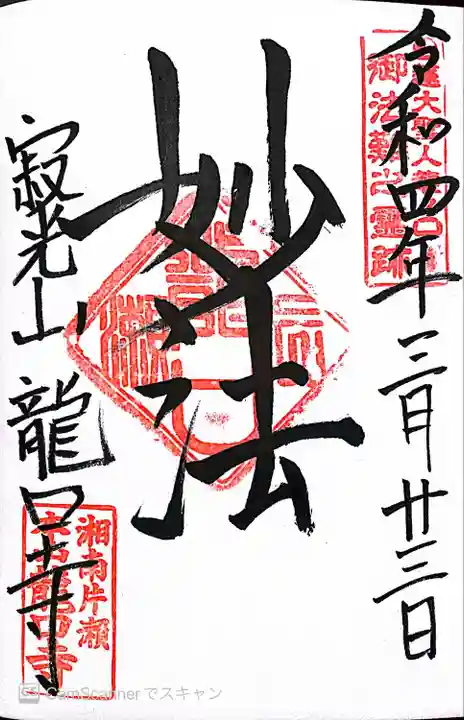 令和四年三月廿三日
御法難之霊跡
妙法
寂光山 龍口寺
湘南片瀬
龍口寺
CamScannerでスキャン